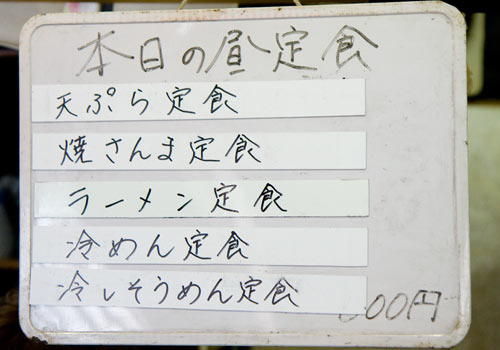 本日の昼定食
天ぷら定食
焼さんま定食
ラーメン定食
冷めん定食
冷しそうめん定食
00円